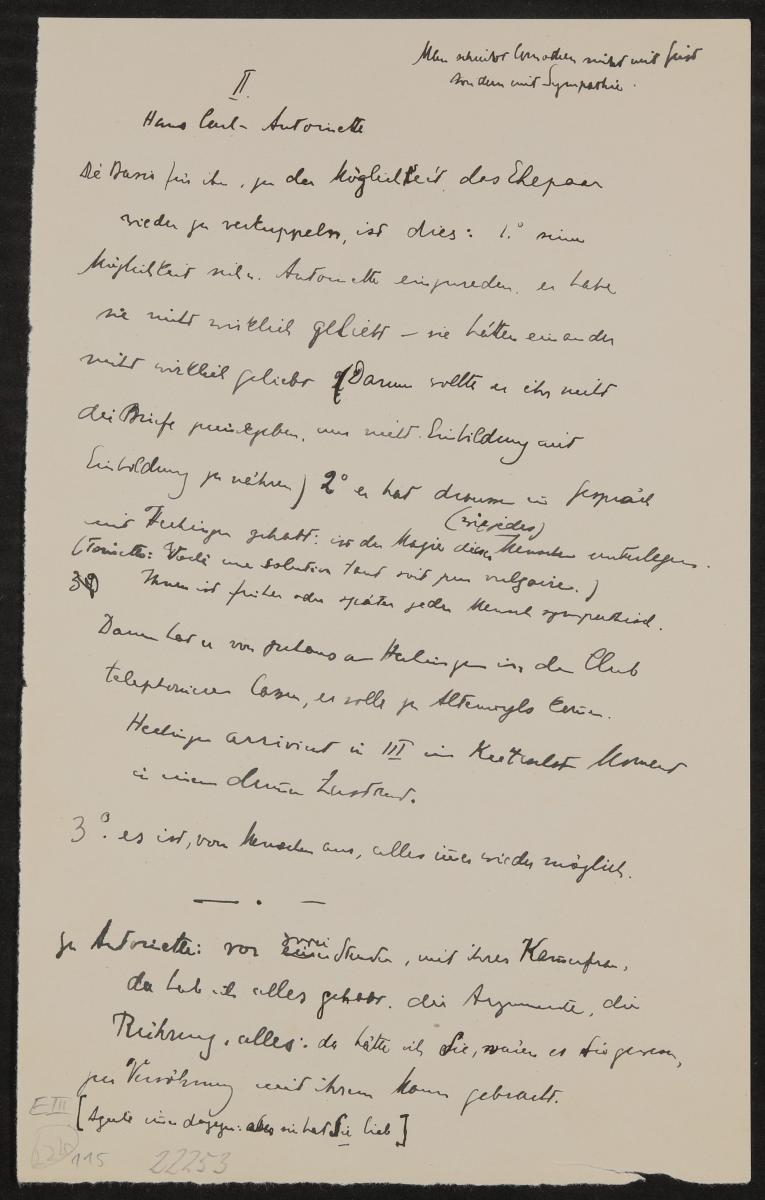 Man schreibt Comödien nicht mit Geist
sondern mit Sympathie.
II.
Hans Carl – Antoinette
Die Basis für ihn, zu der Möglichkeit das Ehepaar
wieder zu verkuppeln, ist dies: 1.° seine
Möglichkeit sich u. Antoinette einzureden, er habe
sie nicht wirklich geliebt – sie hätten einander
nicht wirklich geliebt (Darum sollte er ihr nicht
die Briefe zurückgeben, um nicht Einbildung mit
Einbildung zu nähren) 2° er hat draussen ein Gespräch
(wie jeder)
mit Hechingen gehabt: ist der Magie dieses Menschen unterlegen.
(Toinette: Voilà une solution tant soit peu vulgaire.)
Ihnen ist früher oder später jeder Mensch sympathisch.
Dann hat er von zuhaus an Hechingen in den Club
telephonieren lassen, er solle zu Altenwyls kommen.
Hechingen arriviert in III im kritischst Moment
in einem dummen Zustand.
3°. es ist, vom Menschen aus, alles immer wieder möglich.
zu Antoinette: vor zwei Stunden, mit ihrer Kammerfrau,
da hab ich alles gehabt. die Argumente, die
Rührung, alles: da hätte ich Sie, wären es Sie gewesen,
zur Versöhnung mit ihrem Mann gebracht.
[Agathe immer dagegen: aber sie hat Sie lieb]
E III
115
22253